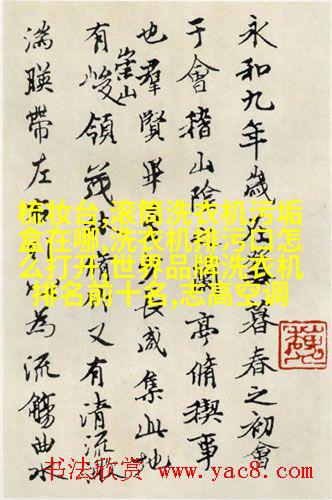 永和九年歲在癸暮春之初會
于會稽山陰之蘭亭脩禊事
也羣賢畢至少長咸集此地
有崇山峻領茂林脩竹又有清流激
湍暎帶左右引以為流觴曲水
梳妆台,滚筒洗衣机污垢
盒在哪,洗衣机排污口怎
么打开,世界品牌洗衣机
排名前十名,志高空调
书法欣赏 www.yac8.com